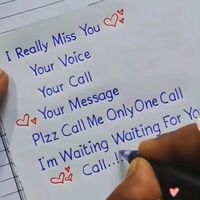 I Really Miss You
Your Voice
Your Call
Your Message
Plzz Call Me Only One Call
I'm Waiting Waiting For Yo
Call....